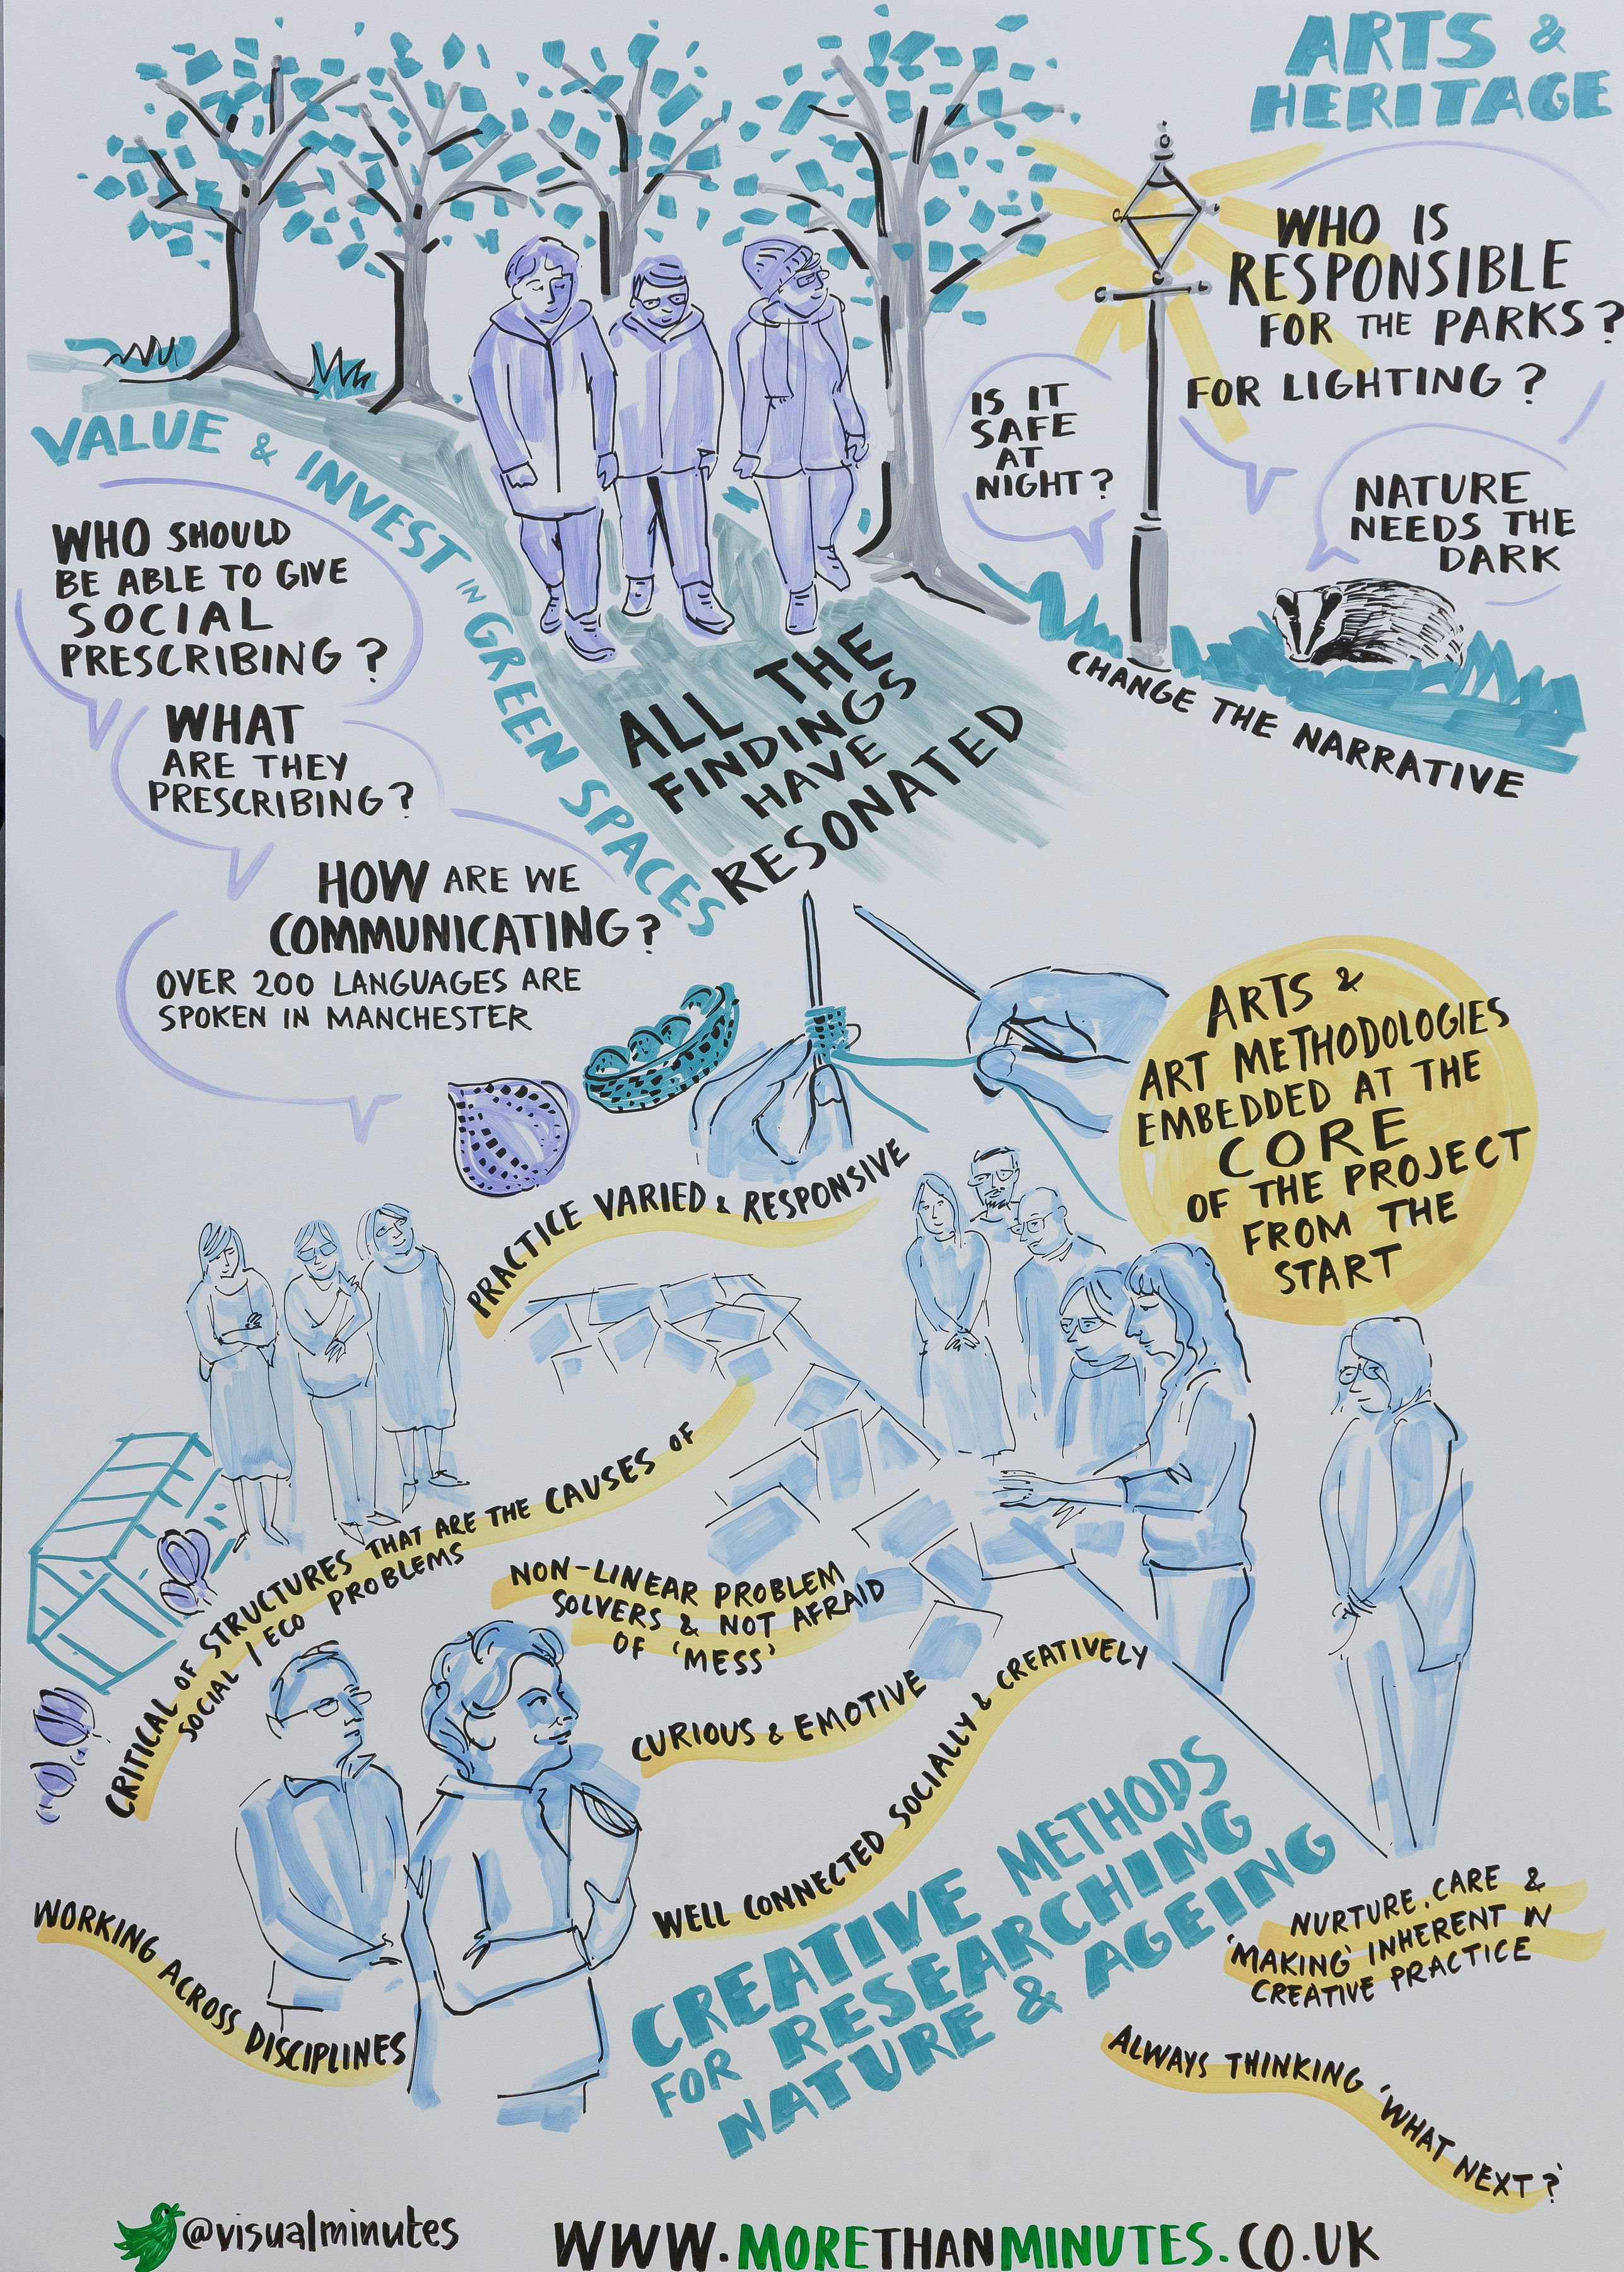 ARTS &
HERITAGE
WHO IS
RESPONSIBLE
FOR THE PARKS?
FOR LIGHTING?
IS IT
SAFE
AT
NIGHT?
NATURE
NEEDS THE
DARK
CHANGE THE NARRATIVE
VALUE & INVEST IN GREEN SPACES
WHO SHOULD
BE ABLE TO GIVE
SOCIAL
PRESCRIBING?
WHAT
ARE THEY
PRESCRIBING?
HOW ARE WE
COMMUNICATING?
OVER 200 LANGUAGES ARE
SPOKEN IN MANCHESTER
ALL THE
FINDINGS
HAVE
RESONATED
ARTS &
ART METHODOLOGIES
EMBEDDED AT THE
CORE
OF THE PROJECT
FROM THE
START
PRACTICE VARIED & RESPONSIVE
CRITICAL OF STRUCTURES THAT ARE THE CAUSES OF
SOCIAL / ECO PROBLEMS
NON-LINEAR PROBLEM
SOLVERS & NOT AFRAID
OF 'MESS'
CURIOUS & EMOTIVE
WELL CONNECTED SOCIALLY & CREATIVELY
WORKING ACROSS DISCIPLINES
CREATIVE METHODS
FOR RESEARCHING
NATURE & AGEING
NURTURE, CARE &
'MAKING' INHERENT IN
CREATIVE PRACTICE
ALWAYS THINKING 'WHAT NEXT?'
@visualminutes
WWW.MORETHANMINUTES.CO.UK